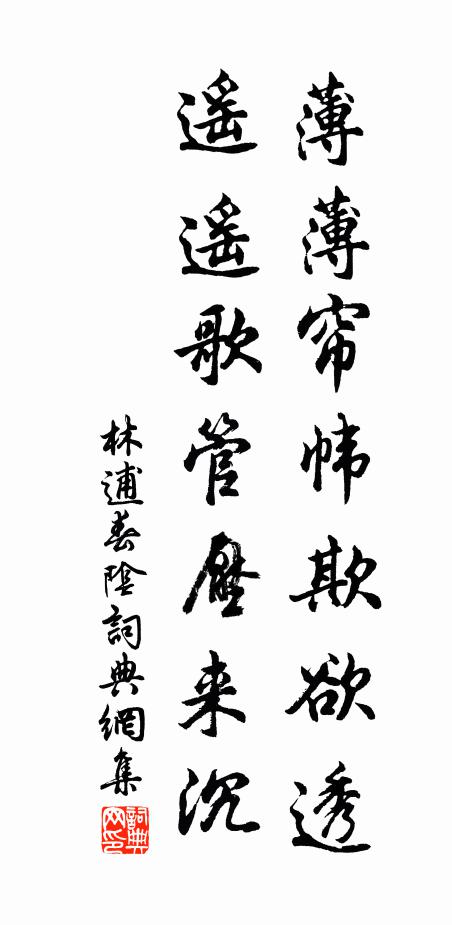 薄薄帘帏欺欲透
遥遥歌管压来沉
林逋春阴词典网集
詞典网印